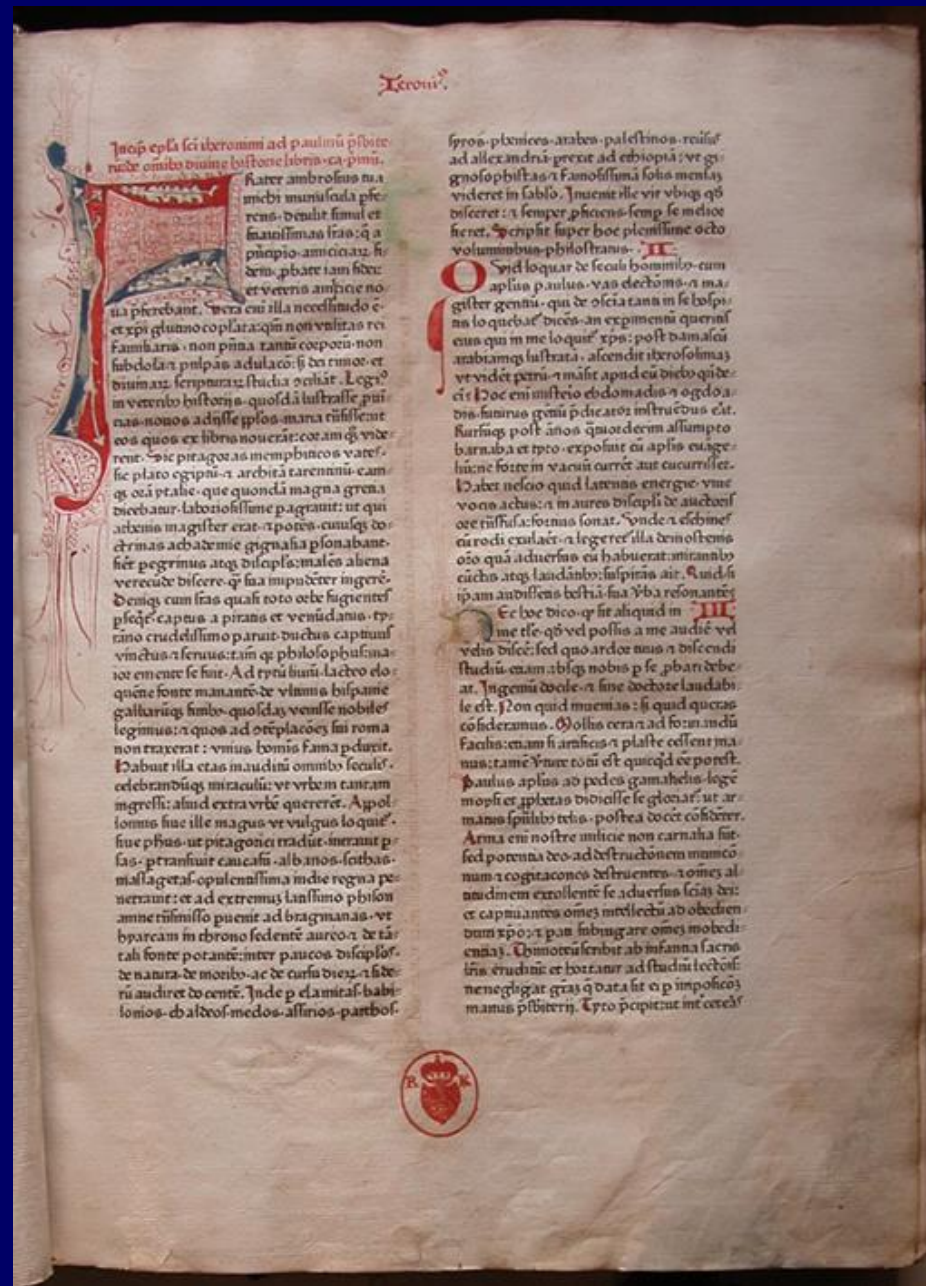 Ieroni⁹.
Incip̄ ep̄la sc̄i iheronimi ad paulinū p̄sbite
rū de om̄ibꝫ diuine historie libris· ca· p̄mū.
FRater ambrosius tua
michi munuscula ꝑfe⸗
rens· detulit simul et
suauissimas lr̄as: q̄ a
pn̄cipio· amiciciaꝝ· fi⸗
dem· ꝓbate iam fidei:
et veteris amicicie no
ua p̄ferebant. Vera eni illa necessitudo ē·
et xp̄i glutino copl̄ata: qm̄ non vtilitas rei
familiaris· non pn̄tia tantū corporū· non
subdola ⁊ palpās adulaco: sꝫ dei timor· et
diuinaꝝ scripturaꝝ studia ꝯciliāt. Legi⁹
in veteribꝫ historijs· quosdā lustrasse ꝓuī
cias· nouos adijsse ꝑplos· maria trāsisse: ut
eos quos ex libris nouerāt: coram qꝫ vide⸗
rent. Sic pitagoras memphiticos vates·
sic plato egiptū· ⁊ architā tarentinū· eam⸗
qꝫ orā ytalie· que quondā magna grecia
dicebatur· laboriosissime ꝑagrauit: ut qui
athenis magister erat· ⁊ potēs· cuiusqꝫ do⸗
ctrinas achademie gignasia ꝑsonabant·
fiēt peregrinus atqꝫ discipl̄s: malēs aliena
verecūde discere· q̄ sua impudēter ingerē·
Deniqꝫ cum lr̄as quasi toto orbe fugientes
ꝑseqt̄· captus a piratis et venūdatus· ty⸗
rāno crudelissimo paruit· ductus captiuus
vinctus ⁊ seruus: tam̄ qꝫ philosophus: ma⸗
ior emente se fuit. Ad tytū liuiū· lacteo elo⸗
quēne fonte manantē· de vltimis hispanie
galliarūqꝫ finibꝫ· quosdaꝫ venisse nobiles
legimus: ⁊ quos ad ꝯtēplacōeꝫ sui roma
non traxerat: vnius homīs fama ꝑduxit.
Habuit illa etas inauditū omnibꝫ seculis·
celebrandūqꝫ miraculū: vt vrbem tantam
ingressi: aliud extra vrbē quererēt. Appol⸗
lonius siue ille magus vt vulgus loquit̄·
siue ph̄us· ut pitagorici tradūt· intrauit ꝑ
sas· ꝑtransiuit caucasū· albanos· scithas·
massagetas· opulentissima indie regna pe⸗
netrauit: et ad extremuꝫ latissimo phison
amne trāsmisso ꝑuenit ad bragmanas· vt
hyarcam in throno sedentē aureo· ⁊ de tā⸗
tali fonte potantē: inter paucos discipl̄os·
de natura· de moribꝫ· ac de cursu dieꝝ· ⁊ side⸗
rū audiret docentē. Inde ꝑ elamitas· babi⸗
lonios· chaldeos· medos· assirios· parthos·
syros· phenices· arabes· palestinos· reuīsꝰ
ad allexandriā· ꝑrexit ad ethiopiā: vt gi⸗
gnosophistas ⁊ famosissimā solis mensaꝫ
videret in sablo. Inuenit ille vir vbiqꝫ qd̄
disceret: ⁊ semper ꝓficiens· semꝑ se melior
fieret. Scripsit super hoc plenissime octo
voluminibus· philostratus. II
QVid loquar de seculi hominibꝫ· cum
apl̄us paulus· vas electiōis· ⁊ ma⸗
gister gentiū· qui de ꝯscia tanti in se hospi⸗
tis loquebat̄ dicēs· an exꝑimentū queritis
eius qui in me loquit̄ xp̄s: post damascū
arabiamqꝫ lustratā· ascendit iherosolimaꝫ
vt vidēt petrū· ⁊ māsit apud eū diebꝫ quīde⸗
cī: Hoc eni misterio ebdomadis ⁊ ogdoa⸗
dis· futurus gentiū p̄dicator instruēdus e̅at.
Rursūqꝫ post ānos quatuordecim assumpto
barnaba et tyto· exposuit cū apl̄is euāge⸗
liū: ne forte in vacuū currēt aut cucurrisset.
Habet nescio quid latentis energie· viue
vocis actus: ⁊ in aures discipl̄i de auctoris
ore trāsfusa: fortius sonat. Vnde ⁊ eschines
cū rodi exularet· ⁊ legeret̄ illa demostenis
or̄o quā aduersus eū habuerat: mirantibꝫ
cūctis atqꝫ laudātibꝫ: suspirās ait. Quid si
ip̄am audissetis bestiā· sua v̄ba resonantē?
NEc hoc dico· q̄ sit aliquid in III
me t̄le· qd̄ vel possis a me audire vel
velis discē: sed quo ardor tuus ⁊ discendi
studiū· etiam absqꝫ nobis ꝑ se ꝓbari debe⸗
at. Ingeniū docile· ⁊ sine doctore laudabi⸗
le est. Non quid inuenias: sꝫ quid queras
cōsideramus. Mollis cera ⁊ ad formandū
facilis: etiam si artificis ⁊ plaste cessent ma⸗
nus: tamē v̄tute totū est quicqd ēe potest.
Paulus apl̄us ad pedes gamalielis· legē
moysi et ꝓphetas didicisse se gloriat̄: ut ar⸗
matus spūlibꝫ telis· postea docēt cōfidēter.
Arma eni nostre milicie non carnalia sūt·
sed potentia deo· ad destructionem munitio
num ⁊ cogitacones destruentes· ⁊ omēꝫ al⸗
titudinem extollentē se aduersus sciaꝫ dei:
et captiuantes omēꝫ intellectū ad obedien⸗
dum xp̄o: ⁊ parati subiugare omēꝫ inobedi⸗
entiaꝫ. Thimoteū scribit ab infantia sacris
lr̄is eruditū: et hortatur ad studiū lectōis:
ne negligat gr̄aꝫ q̄ data sit ei ꝑ īmposicōꝫ
manus p̄sbiterij. Tyto p̄cipit: ut int̄ ceteras
R K